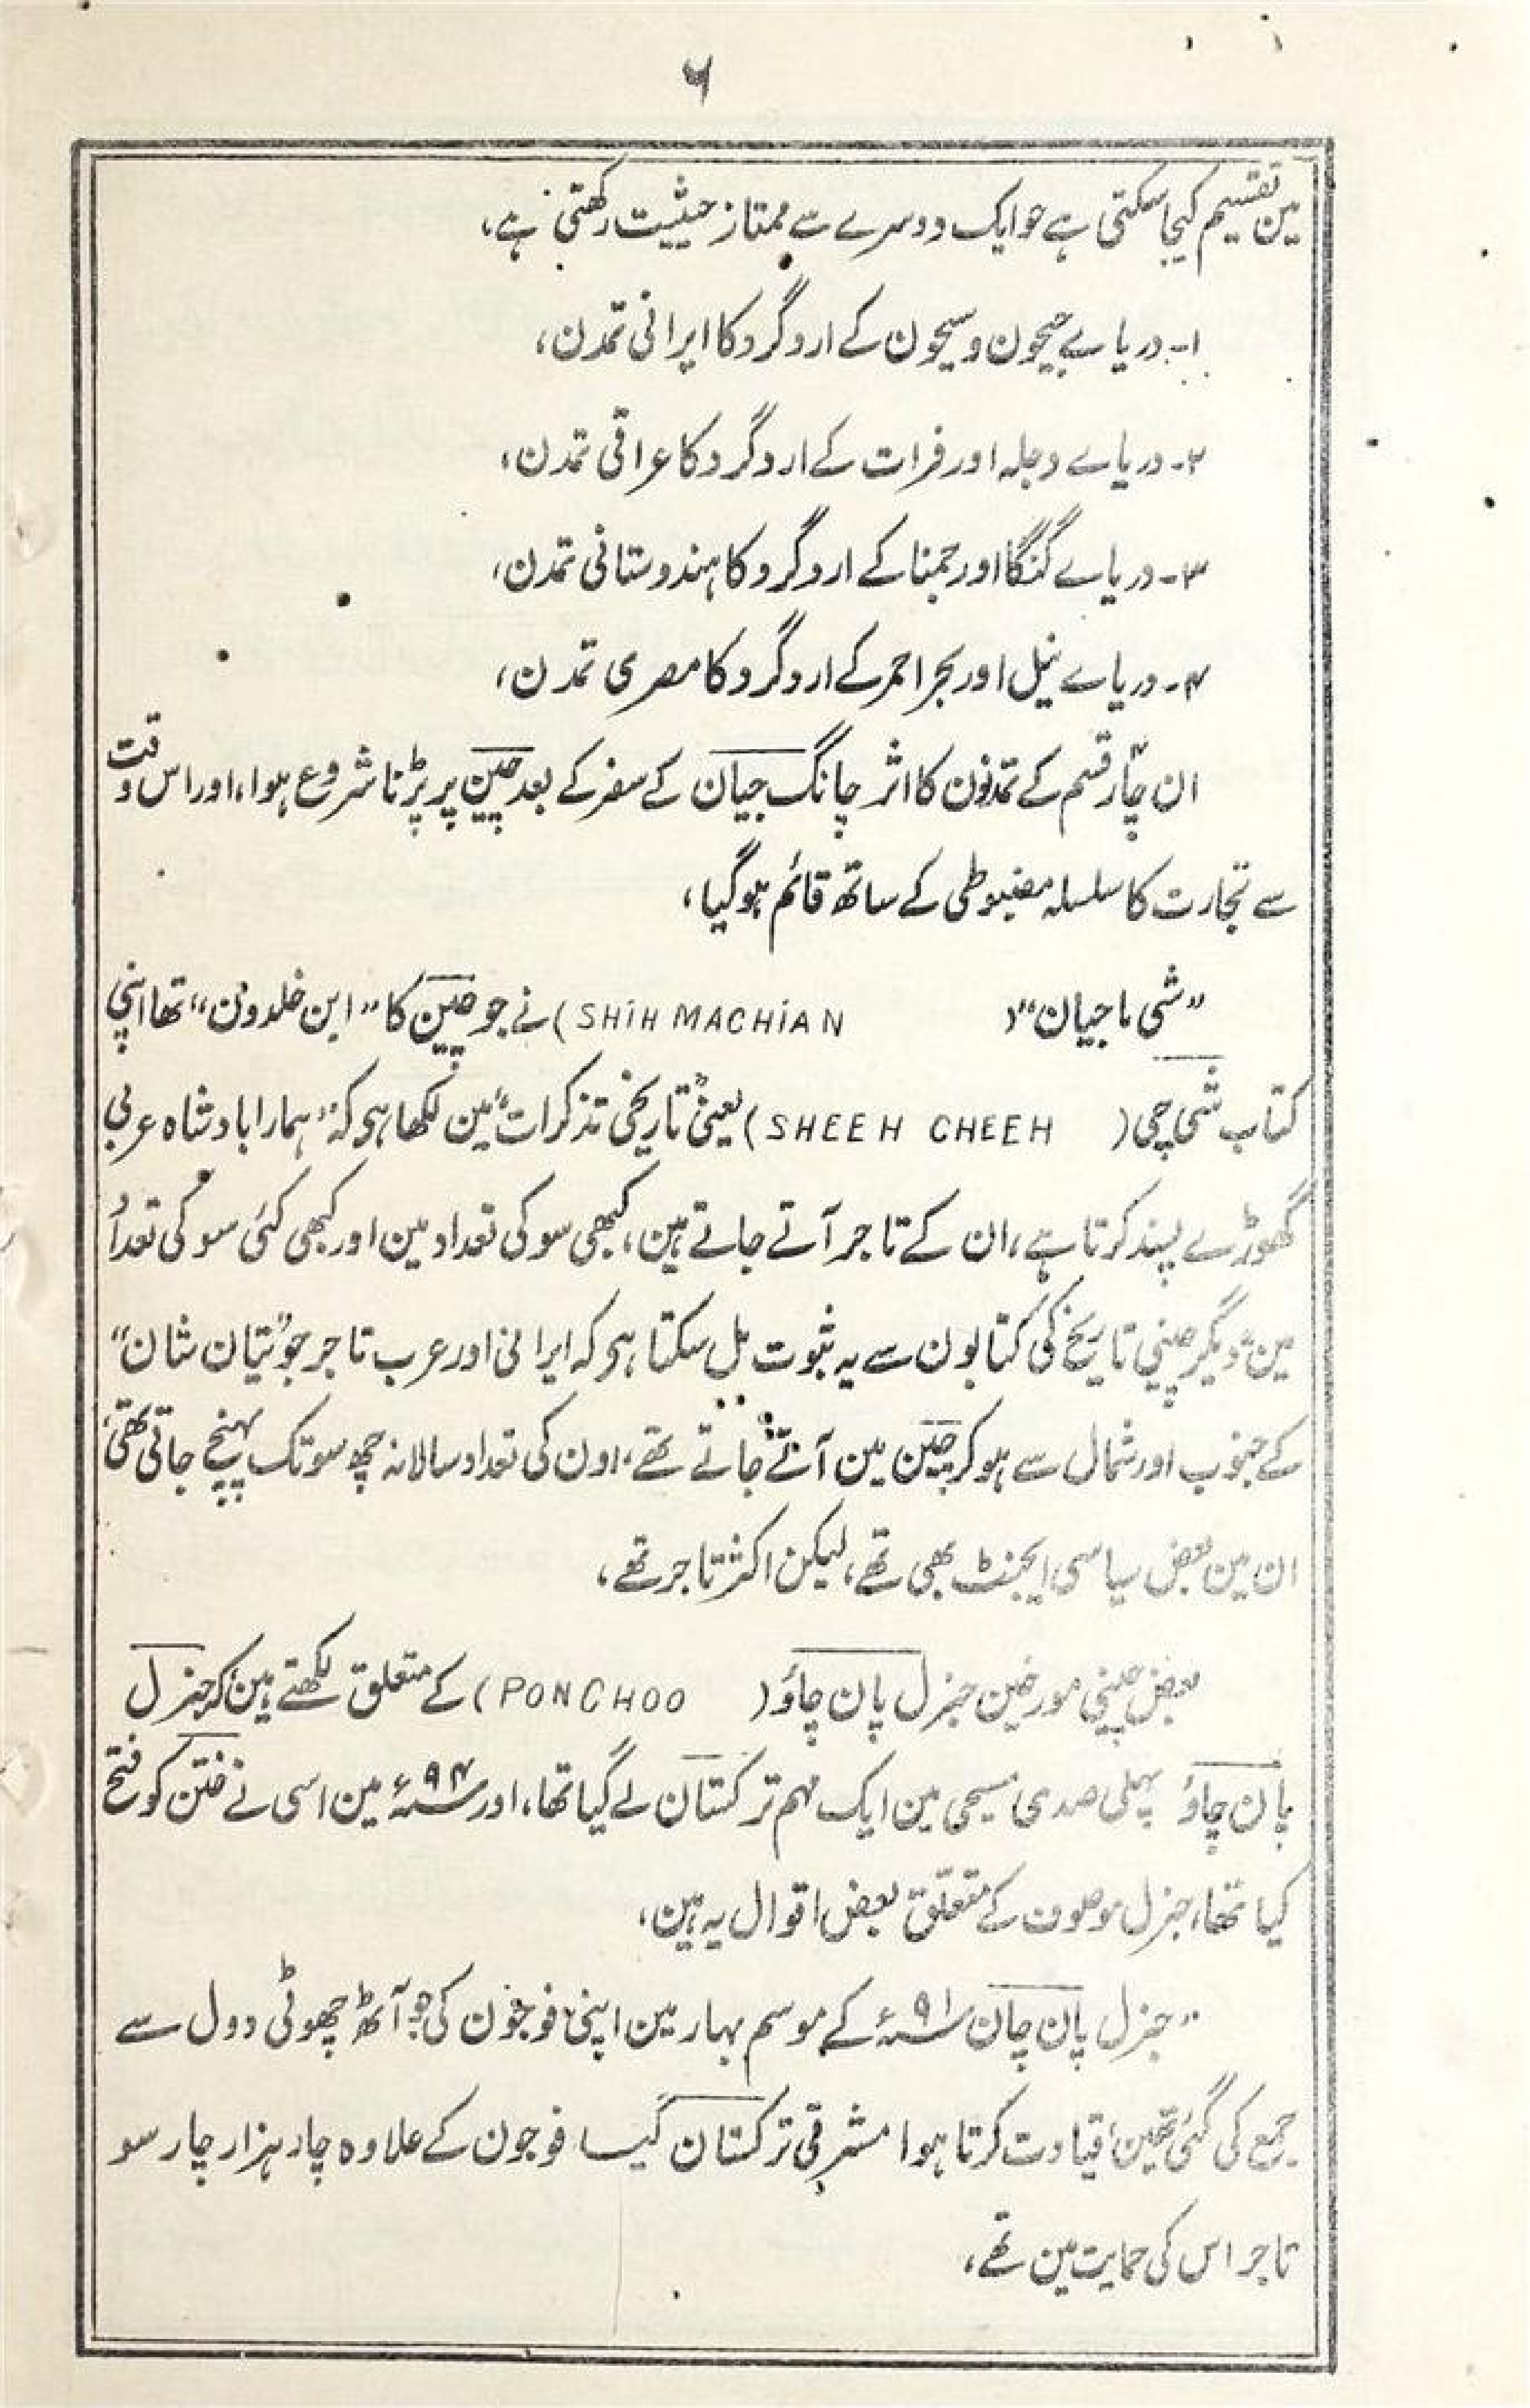 ۶
مین تقسیم کیجا سکتی ہے جو ایک دوسرے سے ممتاز حیثیت رکھتی ہے،
۱۔ دریاے جیحون و سیحون کے اردگرد کا ایرانی تمدن،
۲۔ دریاے دجلہ اور فرات کے اردگرد کا عراقی تمدن،
۳۔ دریاے گنگا اور جمنا کے اردگرد کا ہندوستانی تمدن،
۴۔ دریاے نیل اور بحر احمر کے اردگرد کا مصری تمدن،
ان چار قسم کے تمدنون کا اثر چانگ جیان کے سفر کے بعد چین پر پڑنا شروع ہوا، اور اس وقت
سے تجارت کا سلسلہ مضبوطی کے ساتھ قائم ہوگیا،
”شی ما جیان“ (SHiH MACHiAN) نے جو چین کا ”ابن خلدون“ تھا اپنی
کتاب شی چی (SHEEH CHEEH) یعنی ”تاریخی تذکرات“ مین لکھا ہی کہ ”ہمارا بادشاہ عربی
گھوڑے پسند کرتا ہے، ان کے تاجر آتے جاتے ہین، کبھی سو کی تعداد مین اور کبھی کئی سو کی تعداد
مین“ دیگر چینی تاریخ کی کتابون سے یہ ثبوت مل سکتا ہی کہ ایرانی اور عرب تاجر جو ”تیان شان“
کے جنوب اور شمال سے ہوکر چین مین آتے جاتے تھے، اون کی تعداد سالانہ چھ سو تک پہنچ جاتی تھی،
ان مین بعض سیاسی ایجنٹ بھی تھے، لیکن اکثر تاجر تھے،
بعض چینی مورخین جنرل پان چاؤ (PONCHOO) کے متعلق لکھتے ہین کہ جنرل
پان چاؤ پہلی صدی مسیحی مین ایک مہم ترکستان لے گیا تھا، اور ۹۴ء مین اسی نے ختن کو فتح
کیا تھا، جنرل موصوف کے متعلق بعض اقوال یہ ہین،
”جنرل پان چان ۹۱ء کے موسم بہار مین اپنی فوجون کی جو آٹھ چھوٹی دول سے
جمع کی گئی تھین، قیادت کرتا ہوا مشرقی ترکستان گیا فوجون کے علاوہ چار ہزار چار سو
تاجر اس کی حمایت مین تھے،